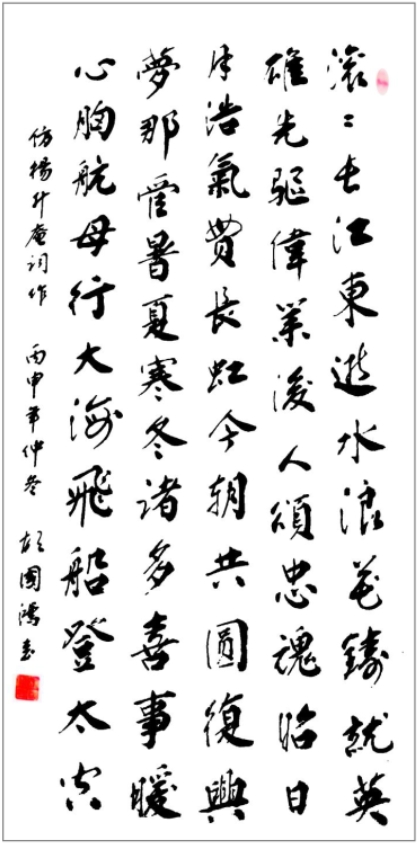 滚々长江東逝水浪花鑄就英
雄先驅偉業後人頌忠魂昭日
月浩氣貫長虹今朝共圓復興
夢那管暑夏寒冬諸多喜事暖
心胸航母行大海飛船登太空
仿楊升庵詞作 丙申年仲冬 胡國書